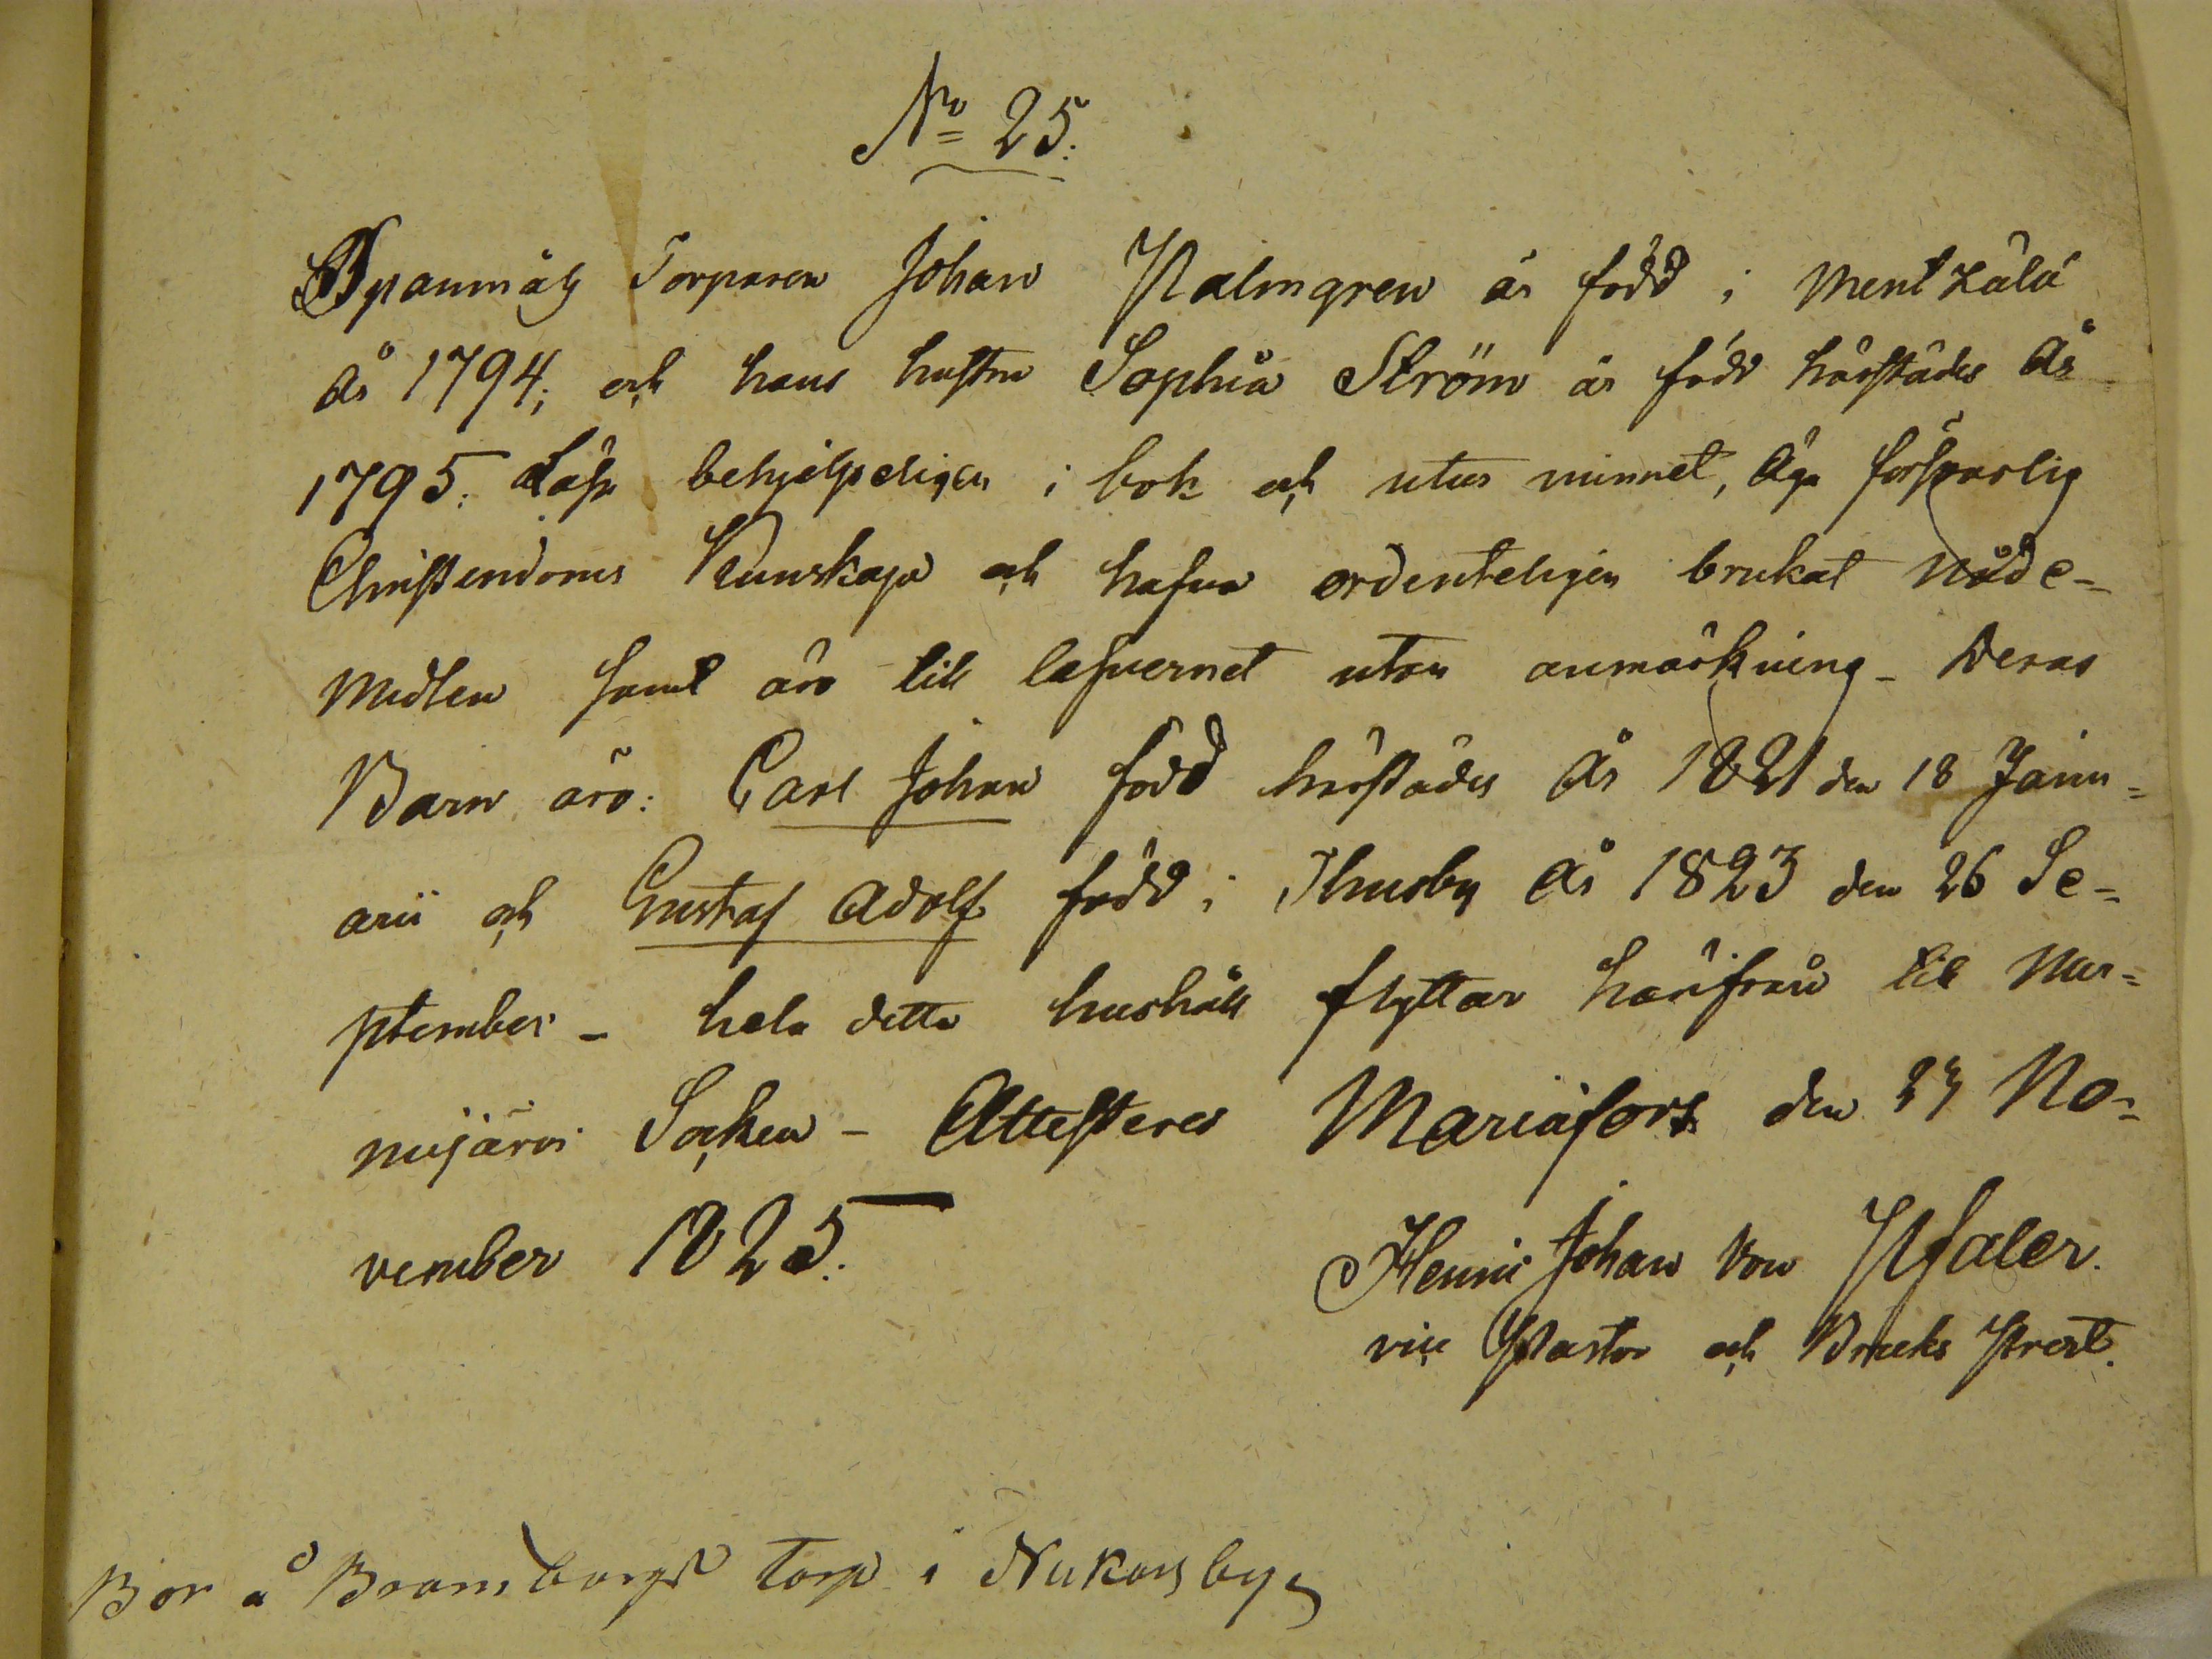 No 25.
Torparen Johan Palmgren är född i Mentzälä
År 1794; och hans hustru Sophia Ström är född härstädes År
1795. Läsa behjelpeligen i bok och utur minnet, Äga försvarlig
Christendoms Kunskap och hafva ordenteligen brukat Nåde-
Medlen samt äro till lefvernet utan anmärkning - Deras
Barn äro: Carl Johan född härstädes År 1821 den 18 Janu=
arii och Gustaf Adolf född i Thusby År 1823 den 26 Se=
ptember - hela detta hushåll flyttar härifrån till Nur=
mijärvi Socken - Attesteres Mariäfors den 27 No=
vember 1825.
Henric Johan Von Pfaler.
vice Pastor och Bruks Prest.
Bor å Bramborgs torp i Nukars by